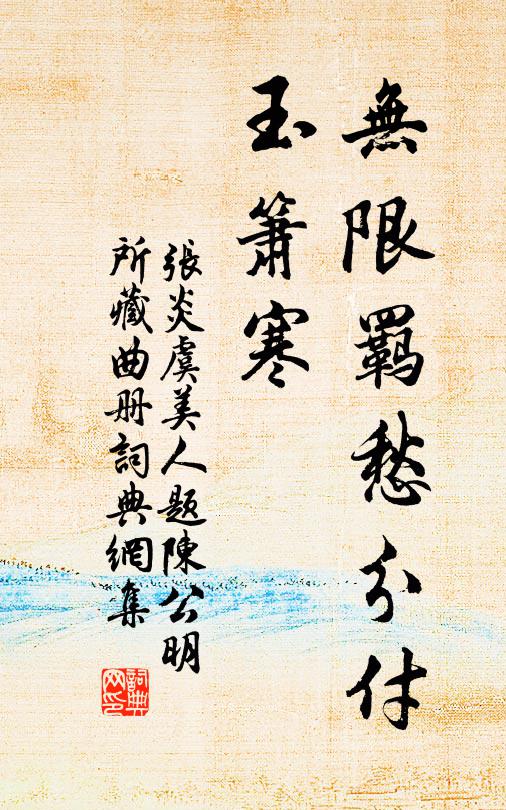 無限羁愁分付
玉簫寒
張炎虞美人题陳公明
所藏曲册詞典網集
詞典
网印